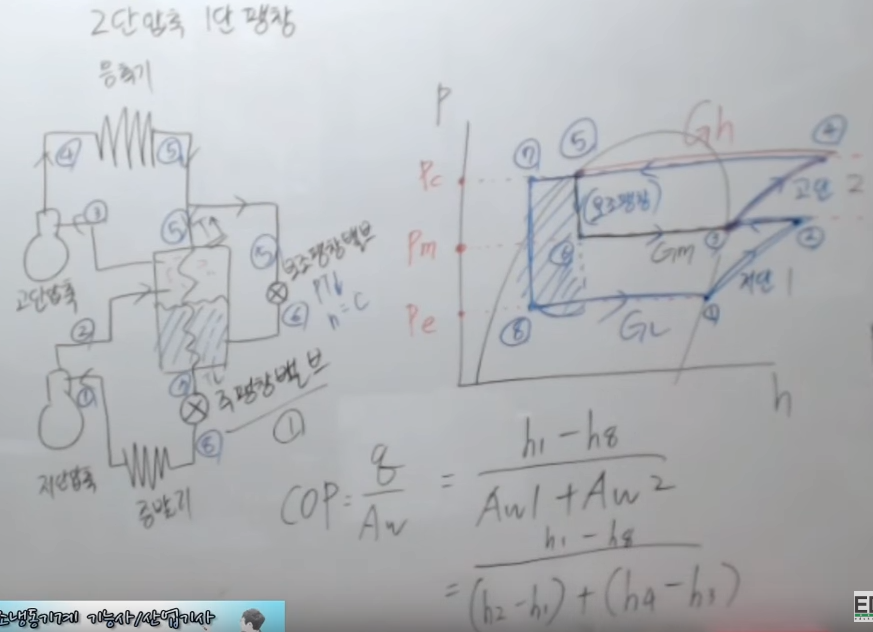 2단압축 1단팽창
응축기
④ ⑤
③
⑤
⑤ 보조팽창밸브
P↓T↓
h=C
⑥
고단압축
②
⑦ TL
주팽창밸브
①
⑧
①
저단압축
증발기
P
Gh
⑦ ⑤ ④
Pc
고단 2
(보조팽창)
Pm
⑥ Gm ③ ②
저단 1
Pe
⑧ GL ①
h
COP = q/Aw = h1-h8/Aw1+Aw2
= h1-h8/(h2-h1)+(h4-h3)
조냉동기계 기능사/산업기사